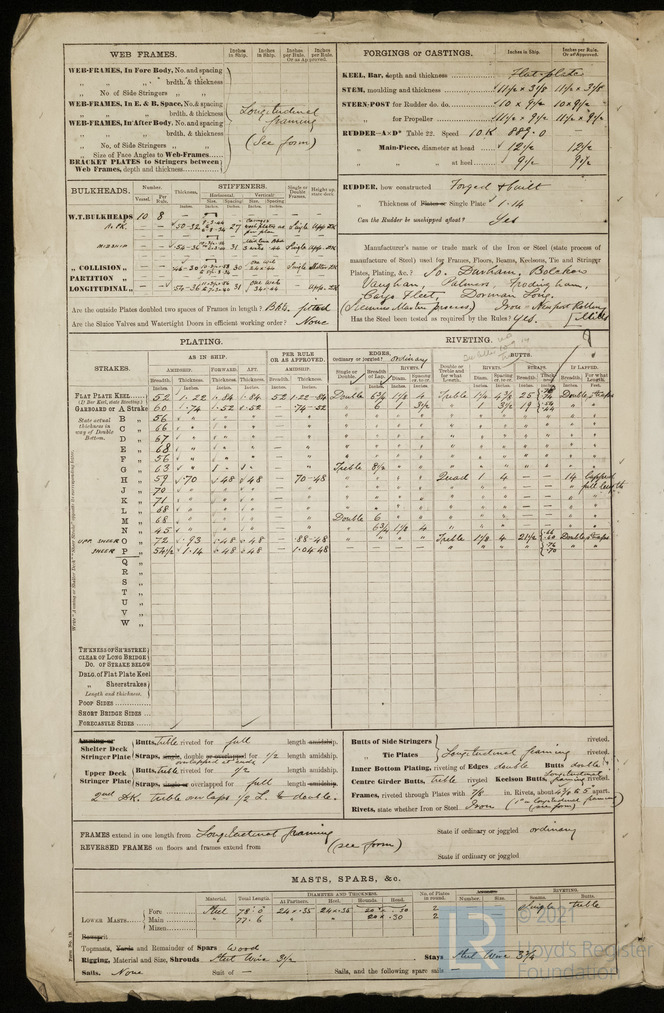 WEB FRAMES.
Inches in Ship. Inches in Ship. Inches per Rule. Inches per Rule. Or as Approved.
WEB-FRAMES, In Fore Body, No. and spacing
brdth. & thickness
No of Side Stringers
WEB-FRAMES, In E. & B. Space, No. & spacing
brdth. & thickness
WEB-FRAMES, In After Body, No. and spacing
brdth. & thickness
No. of Side Stringers
Size of Face Angles to Web-Frames
BRACKET PLATES to Stringers between Web Frames, depth and thickness
Longitudinal framing
(See form)
FORGINGS or CASTINGS.
Inches in Ship. Inches per Rule. Or as approved.
KEEL, Bar, depth and thickness Flat plate
STEM, moulding and thickness 11½ x 3/8 11½ x 3/8
STERN-POST for Rudder do. do. 10 x 9½ 10 x 9½
for Propeller 11½ x 9½ 11½ x 9½
RUDDER—A×D* Table 22. Speed 10 K 889.0
Main-Piece, diameter at head 12½ 12½
at heel 9½ 9½
RUDDER, how constructed Forged & built
Thickness of Plates or Single Plate 1.14
Can the Rudder be unshipped afloat? Yes
BULKHEADS.
Number. Vessel. Per Rule. Thickness.
STIFFENERS.
Horizontal. Vertical. Size. Spacing. Size. Spacing.
Single or Double Frames. Height up, state deck.
W.T. BULKHEADS 10 8
A.PK. 50-32 27 Single Upp. DK
MIDSHIP 54-36 31 Single Upp. DK
COLLISION 46-30 30 Single Shelter DK
PARTITION
LONGITUDINAL 54-36 31 Upp. DK
Are the outside Plates doubled two spaces of Frames in length? fitted
Are the Sluice Valves and Watertight Doors in efficient working order? None
Manufacturer's name or trade mark of the Iron or Steel (state process of
manufacture of Steel) used for Frames, Floors, Beams, Keelsons, Tie and Stringer
Plates, Plating, &c.? So. Durham, Bolckow
Vaughan, Palmers, Frodingham,
Cargo Fleet, Dorman Long.
(Siemens Martin process) Iron - Newport Rolling
Has the Steel been tested as required by the Rules? Yes. Mills
PLATING.
RIVETING.
STRAKES.
AS IN SHIP. PER RULE OR AS APPROVED.
AMIDSHIP. FORWARD. AFT. AMIDSHIP.
Breadth. Thickness. Thickness. Thickness. Breadth. Thickness.
EDGES. Ordinary or joggled? ordinary
Single or Double. Breadth of Lap. RIVETS. Diam. Spacing cr. to cr.
BUTTS.
Double or Treble and for what Length. RIVETS. Diam. Spacing cr. to cr. STRAPS. Breadth. Thickness. IF LAPPED. Breadth. For what Length.
FLAT PLATE KEEL 52 1.22 .84 .84 52 1.22-.84 Double 6¾ 1⅛ 4 Treble 1⅛ 4¾ 25 Double straps
(If Bar Keel, state Riveting)
GARBOARD or A Strake 60 .74 .52 .52 — .74-.52 " 6 1 3½ " 1 3½ 19
State actual thickness in way of Double Bottom.
B " 56
C " 66
D " 67
E " 68
F " 56
G " 63 Treble 8½
H " 59 .70 .48 .48 — .70-.48 Quad 1 4 — — 14 lapped
J " 70 full length
K " 71
L " 68
M " 68 Double 6
N " 45 6¾ 1⅛ 4
UPP. SHEER O " 72 .93 .48 .48 — .88-.48 Treble 1⅛ 4 21½ Double straps
SHEER P " 54½ 1.14 .48 .48 — 1.04-.48
Q "
R "
S "
T "
U "
V "
W "
THICKNESS OF SH'RSTRKE
CLEAR OF LONG BRIDGE
DO. OF STRAKE BELOW
DBLG. of Flat Plate Keel
Sheerstrakes
Length and thickness.
POOP SIDES
SHORT BRIDGE SIDES
FORECASTLE SIDES
Awning or Shelter Deck Stringer Plate
Butts, treble riveted for full length amidship.
Straps, single, double or overlapped for ½ length amidship.
overlapped at ends
Upper Deck Stringer Plate
Butts, treble riveted for ½ length amidship.
Straps, single or overlapped for full length amidship.
2nd DK. treble overlaps ½ L. & double.
Butts of Side Stringers riveted.
Tie Plates Longitudinal framing riveted.
Inner Bottom Plating, riveting of Edges double Butts double
Centre Girder Butts, treble riveted Keelson Butts, Longitudinal framing riveted.
Frames, riveted through Plates with 7/8 in. Rivets, about 4⅜ to 5 apart.
Rivets, state whether Iron or Steel Iron (1" - longitudinal framing)
(see form)
FRAMES extend in one length from Longitudinal framing State if ordinary or joggled ordinary
REVERSED FRAMES on floors and frames extend from (see form)
State if ordinary or joggled
MASTS, SPARS, &c.
Material. Total Length. DIAMETER AND THICKNESS. At Partners. Heel. Hounds. Head. No. of Plates in round. Number. Size. RIVETING. Seams. Butts.
LOWER MASTS Fore Steel 78.0 24 x .35 24 x .35 20 x .30 2 Single treble
Main " 77.6 " " 20 x .30 2
Mizen
Bowsprit
Topmasts, Yards and Remainder of Spars Wood
Rigging, Material and Size, Shrouds Steel Wire 3½ Stays Steel Wire 3¾
Sails. None Suit of — Sails, and the following spare sails —
LR © 2021
Lloyd's Register
Foundation